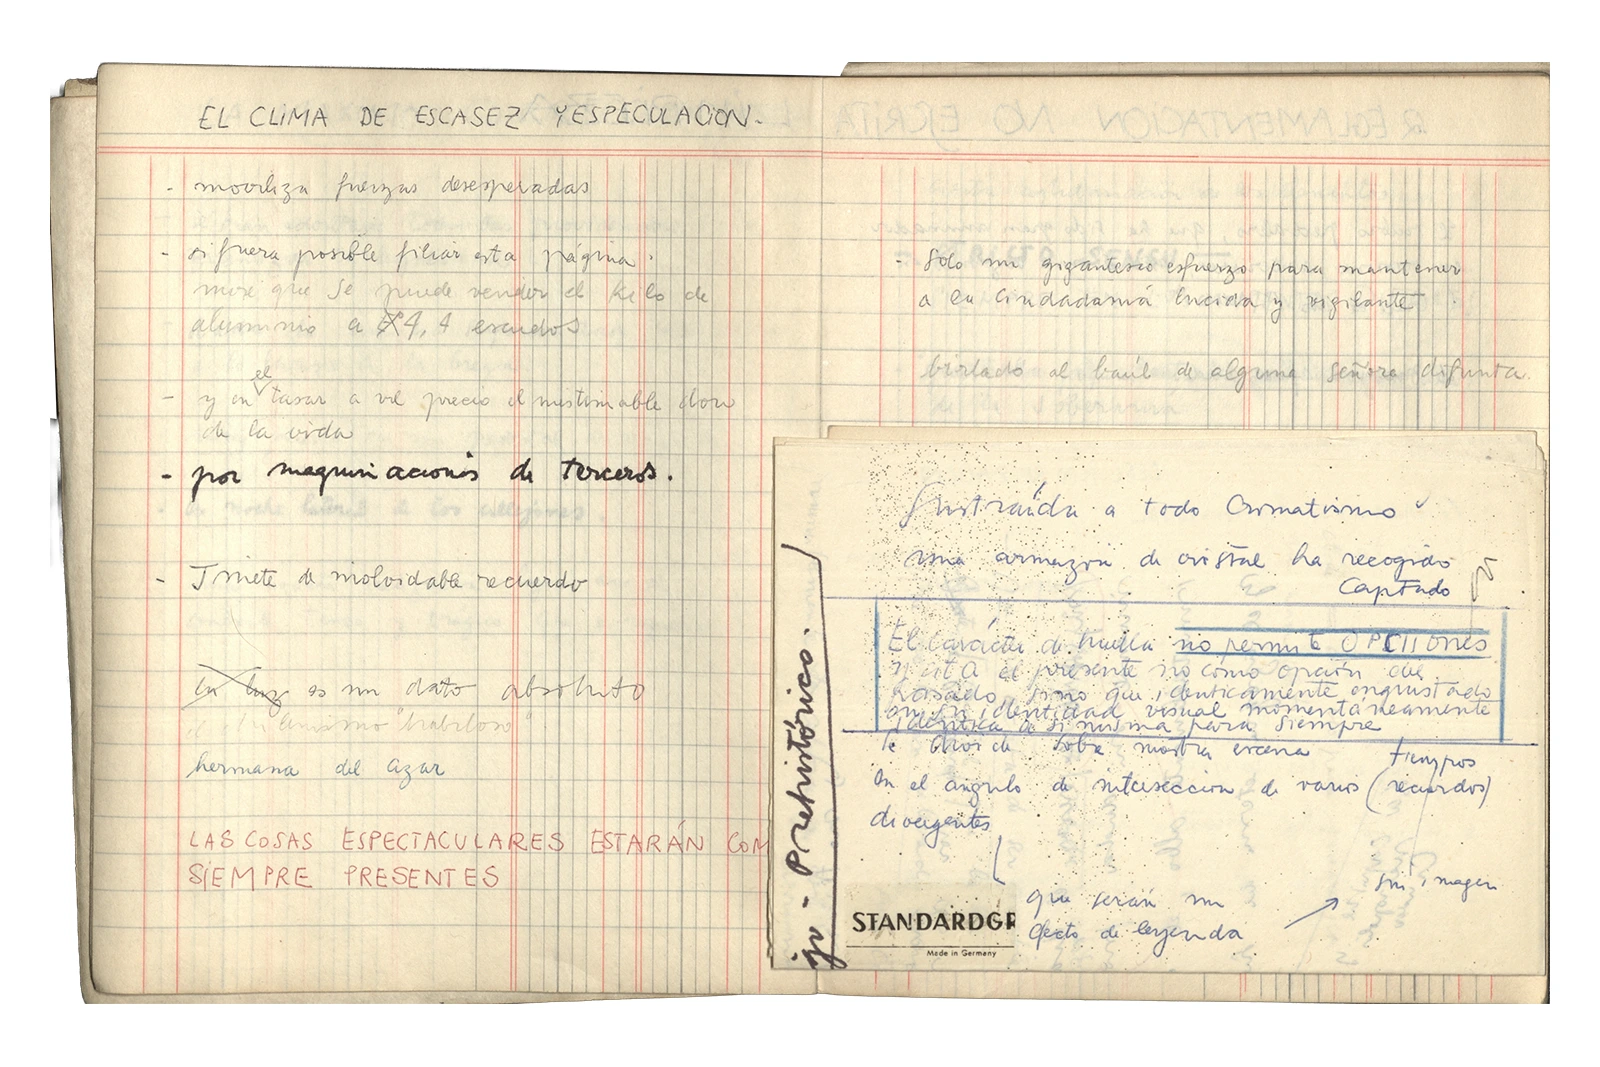 EL CLIMA DE ESCASEZ Y ESPECULACION.
- moviliza fuerzas desesperadas
- si fuera posible filiar esta página.
que se puede vender el kilo de
aluminio a 4,4 escudos
el
- y en tasar a vil precio el inestimable don
de la vida
- por maquinaciones de terceros.
- Jinete de inolvidable recuerdo
la luz es un dato absoluto
hermana del azar
LAS COSAS ESPECTACULARES ESTARÁN COM
SIEMPRE PRESENTES
REGLAMENTACION NO ESCRITA
- Solo un gigantesco esfuerzo para mantener
a la ciudadanía lucida y vigilante
birlado al baúl de alguna señora difunta.
Sustraída a todo cromatismo
una armazón de cristal ha recogido
captado
El carácter de huella no permite OPCIONES
y cita el presente no cómo opción del
pasado sino que idénticamente engustado
en su identidad visual momentáneamente
idéntica a si misma para siempre
sobre nuestra escena
tiempos
en el angulo de interseccion de varios (recuerdos)
divergentes
sin imagen
que serán un
efecto de leyenda
STANDARDGR
Made in Germany
ijo - Prehistórico.